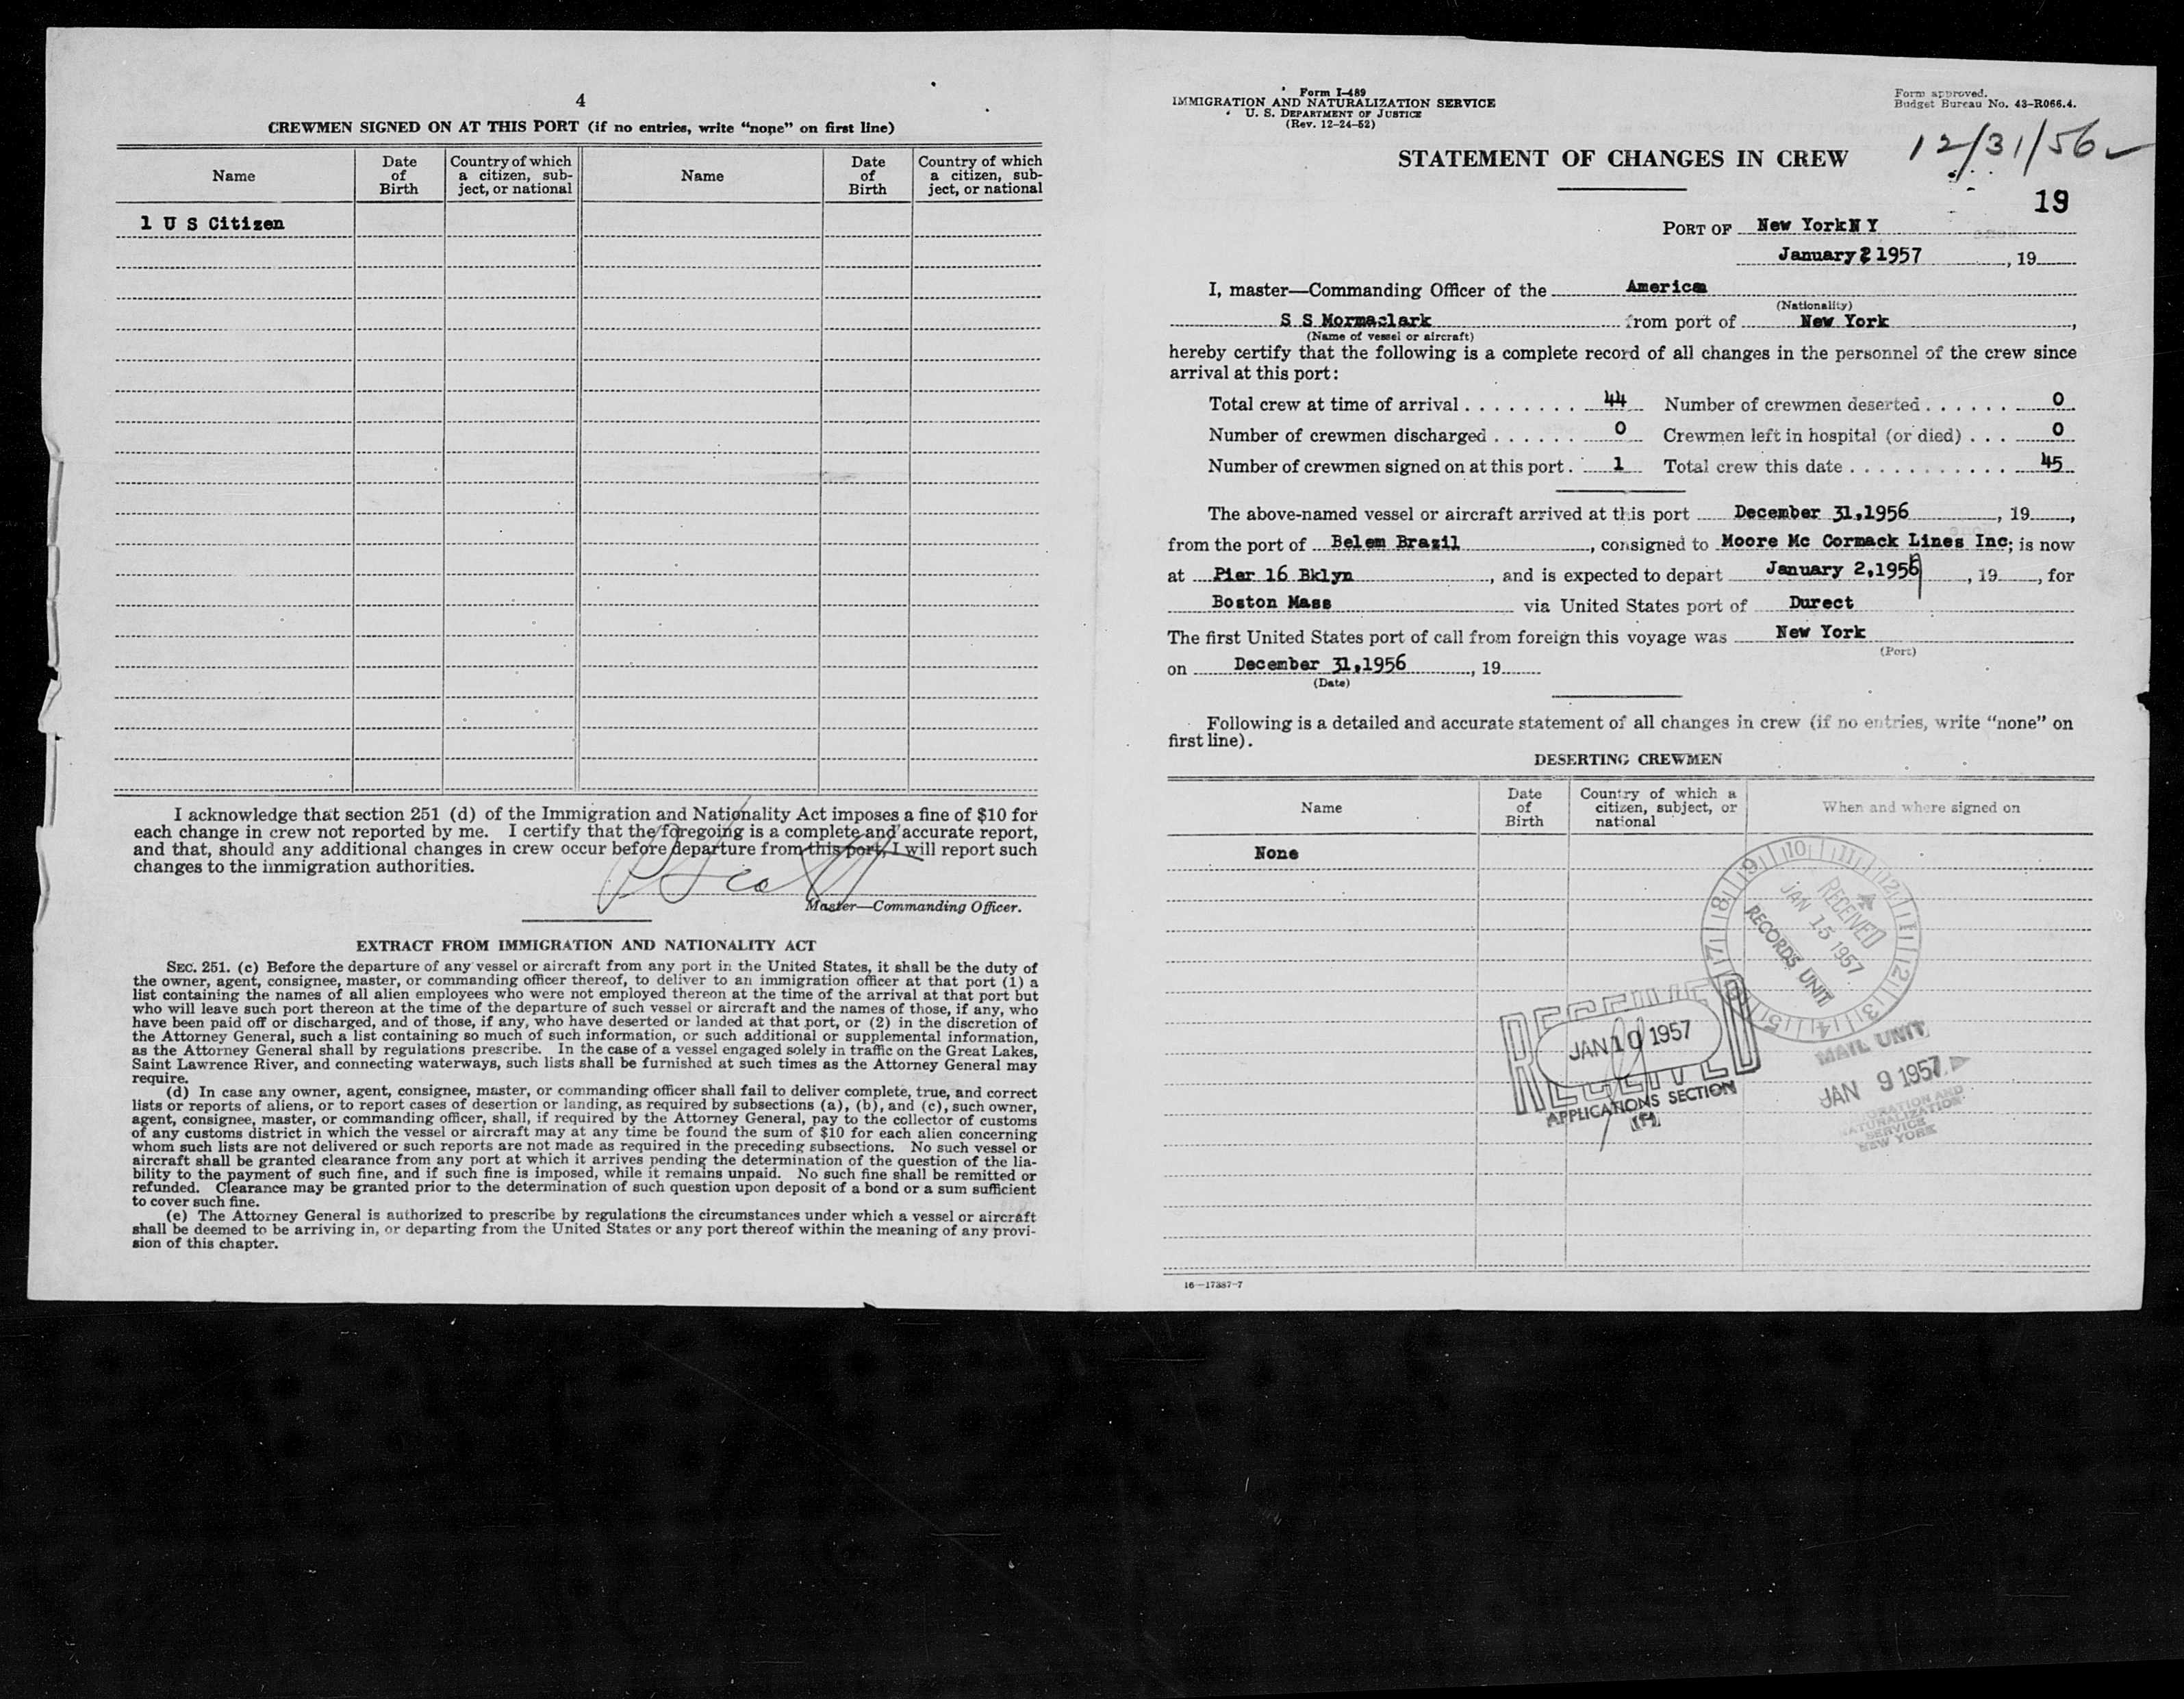 4
CREWMEN SIGNED ON AT THIS PORT (if no entries, write “none” on first line)
Name
Date of Birth
Country of which a citizen, sub-ject, or national
Name
Date of Birth
Country of which a citizen, sub-ject, or national
1 U S Citizen
I acknowledge that section 251 (d) of the Immigration and Nationality Act imposes a fine of $10 for
each change in crew not reported by me. I certify that the foregoing is a complete and accurate report,
and that, should any additional changes in crew occur before departure from this port, I will report such
changes to the immigration authorities.
Master—Commanding Officer.
EXTRACT FROM IMMIGRATION AND NATIONALITY ACT
SEC. 251. (c) Before the departure of any vessel or aircraft from any port in the United States, it shall be the duty of
the owner, agent, consignee, master, or commanding officer thereof, to deliver to an immigration officer at that port (1) a
list containing the names of all alien employees who were not employed thereon at the time of the arrival at that port but
who will leave such port thereon at the time of the departure of such vessel or aircraft and the names of those, if any, who
have been paid off or discharged, and of those, if any, who have deserted or landed at that port, or (2) in the discretion of
the Attorney General, such a list containing so much of such information, or such additional or supplemental information,
as the Attorney General shall by regulations prescribe. In the case of a vessel engaged solely in traffic on the Great Lakes,
Saint Lawrence River, and connecting waterways, such lists shall be furnished at such times as the Attorney General may
require.
(d) In case any owner, agent, consignee, master, or commanding officer shall fail to deliver complete, true, and correct
lists or reports of aliens, or to report cases of desertion or landing, as required by subsections (a), (b), and (c), such owner,
agent, consignee, master, or commanding officer, shall, if required by the Attorney General, pay to the collector of customs
of any customs district in which the vessel or aircraft may at any time be found the sum of $10 for each alien concerning
whom such lists are not delivered or such reports are not made as required in the preceding subsections. No such vessel or
aircraft shall be granted clearance from any port at which it arrives pending the determination of the question of the lia-
bility to the payment of such fine, and if such fine is imposed, while it remains unpaid. No such fine shall be remitted or
refunded. Clearance may be granted prior to the determination of such question upon deposit of a bond or a sum sufficient
to cover such fine.
(e) The Attorney General is authorized to prescribe by regulations the circumstances under which a vessel or aircraft
shall be deemed to be arriving in, or departing from the United States or any port thereof within the meaning of any provi-
sion of this chapter.
Form I-489
IMMIGRATION AND NATURALIZATION SERVICE
U. S. DEPARTMENT OF JUSTICE
(Rev. 12-24-52)
Form approved.
Budget Bureau No. 43-R066.4.
12/31/56
STATEMENT OF CHANGES IN CREW
19
PORT OF New YorkN Y
January 2 1957, 19
I, master—Commanding Officer of the America
(Nationality)
S S Mormaclark from port of New York,
(Name of vessel or aircraft)
hereby certify that the following is a complete record of all changes in the personnel of the crew since
arrival at this port:
Total crew at time of arrival 44 Number of crewmen deserted 0
Number of crewmen discharged 0 Crewmen left in hospital (or died) 0
Number of crewmen signed on at this port 1 Total crew this date 45
The above-named vessel or aircraft arrived at this port December 31,1956, 19,
from the port of Belem Brazil, consigned to Moore Mc Cormack Lines Inc; is now
at Pier 16 Bklyn, and is expected to depart January 2,195, 19, for
Boston Mass via United States port of Durect
The first United States port of call from foreign this voyage was New York
(Port)
on December 31,1956, 19
(Date)
Following is a detailed and accurate statement of all changes in crew (if no entries, write “none” on
first line).
DESERTING CREWMEN
Name
Date of Birth
Country of which a citizen, subject, or national
When and where signed on
None
RECEIVED
JAN 15 1957
RECORDS UNIT
RECEIVED
JAN 10 1957
RECEIVED
APPLICATIONS SECTION
MAIL UNIT
JAN 9 1957
NATURALIZATION
SERVICE
NEW YORK
16—17387-7